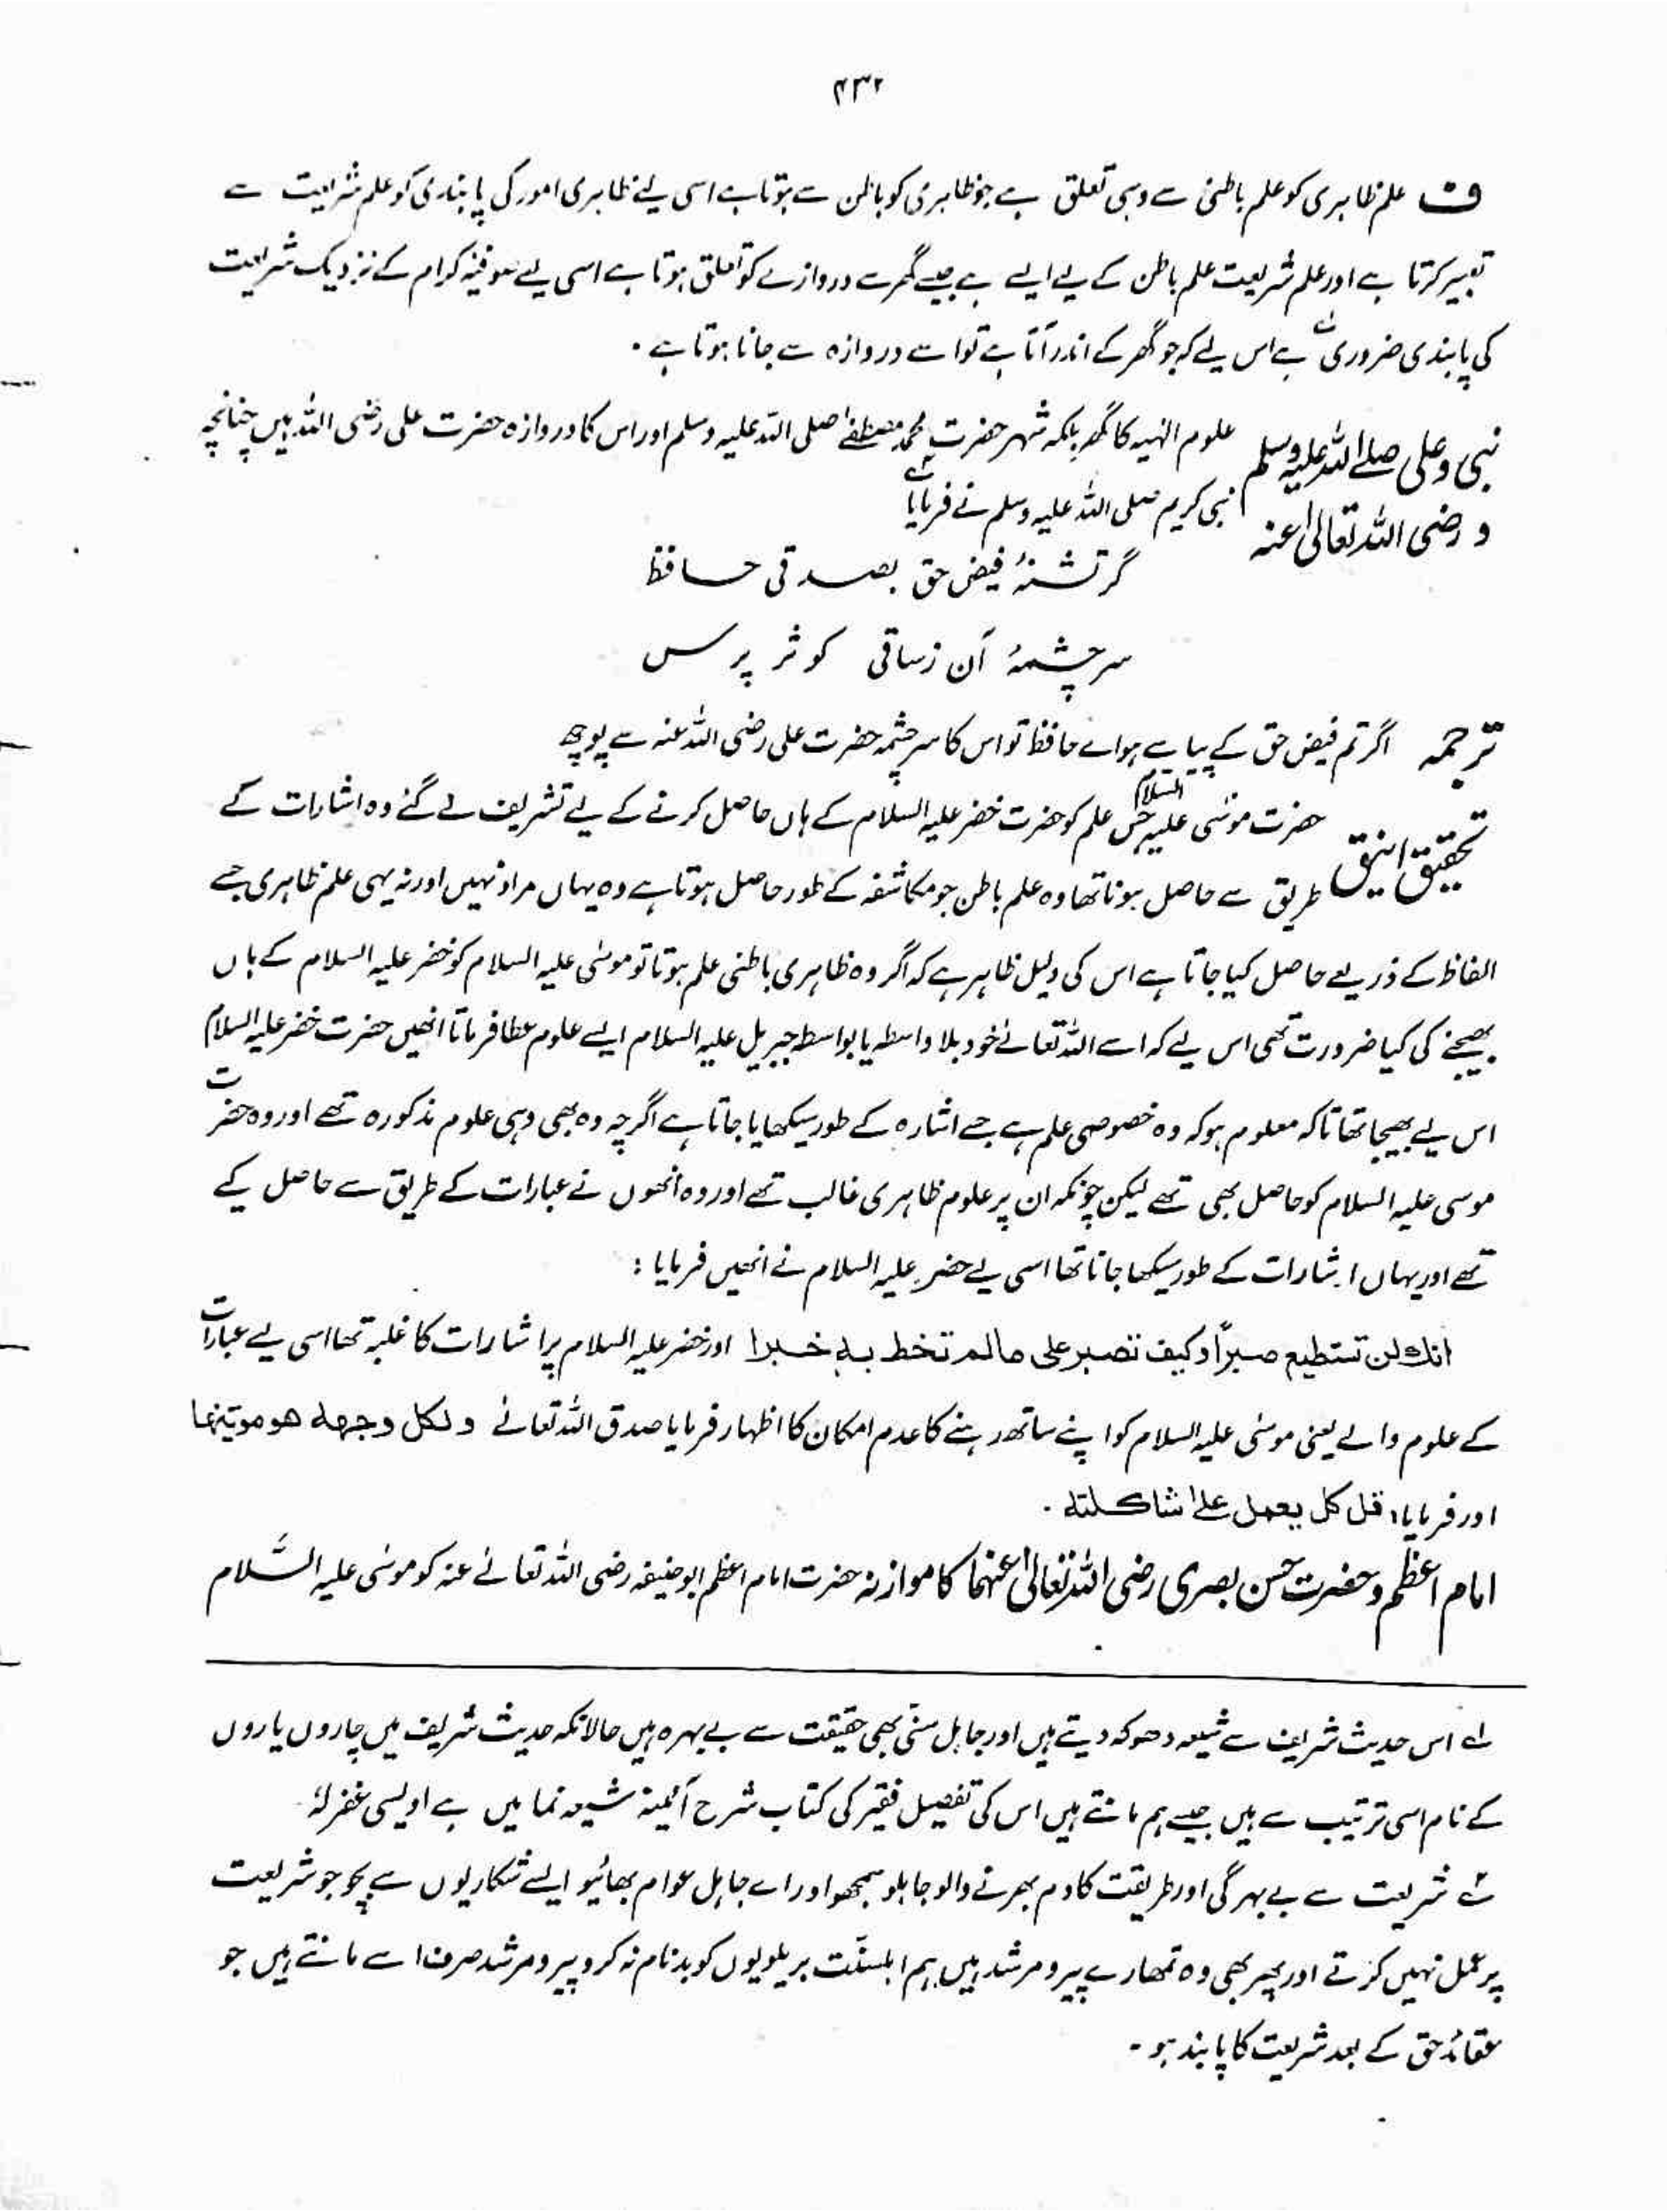 ۴۳۲
ف علم ظاہری کو علم باطنی سے وہی تعلق ہے جو ظاہری کو باطن سے ہوتا ہے اسی لیے ظاہری امور کی پابندی کو علم شریعت سے
تعبیر کرتا ہے اور علم شریعت علم باطن کے لیے ایسے ہے جیسے گھر سے دروازے کو تعلق ہوتا ہے اسی لیے صوفیہ کرام کے نزدیک شریعت
کی پابندی ضروری ہے اس لیے کہ جو گھر کے اندر آتا ہے تو اسے دروازہ سے جانا ہوتا ہے ۔
نبی و علی صلے اللہ علیہ وسلم و رضی اللہ تعالیٰ عنہ
علوم الٰہیہ کا گھر بلکہ شہر حضرت محمد مصطفےٰ صلی اللہ علیہ وسلم اور اس کا دروازہ حضرت علی رضی اللہ ہیں چنانچہ
نبی کریم صلی اللہ علیہ وسلم نے فرمایا
گر تشنۂ فیض حق بصدقی حافظ
سرچشمۂ آن زساقی کوثر پرس
ترجمہ اگر تم فیض حق کے پیاسے ہو اے حافظ تو اس کا سرچشمہ حضرت علی رضی اللہ عنہ سے پوچھ
تحقیق انیق حضرت موسٰی علیہ السلام جس علم کو حضرت خضر علیہ السلام کے ہاں حاصل کرنے کے لیے تشریف لے گئے وہ اشارات کے
طریق سے حاصل ہونا تھا وہ علم باطن جو مکاشفہ کے طور حاصل ہوتا ہے وہ یہاں مراد نہیں اور نہ یہی علم ظاہری جسے
الفاظ کے ذریعے حاصل کیا جاتا ہے اس کی دلیل ظاہر ہے کہ اگر وہ ظاہری باطنی علم ہوتا تو موسٰی علیہ السلام کو خضر علیہ السلام کے ہاں
بھیجنے کی کیا ضرورت تھی اس لیے کہ اسے اللہ تعالےٰ خود بلا واسطہ یا بواسطہ جبریل علیہ السلام ایسے علوم عطا فرماتا انھیں حضرت خضر علیہ السلام
اس لیے بھیجا تھا تاکہ معلوم ہو کہ وہ خصوصی علم ہے جسے اشارہ کے طور سیکھایا جاتا ہے اگرچہ وہ بھی وہی علوم مذکورہ تھے اور وہ حضرت
موسی علیہ السلام کو حاصل بھی تھے لیکن چونکہ ان پر علوم ظاہری غالب تھے اور وہ انھوں نے عبارات کے طریق سے حاصل کیے
تھے اور یہاں اشارات کے طور سیکھا جانا تھا اسی لیے حضر علیہ السلام نے انھیں فرمایا :
انك لن تستطیع صبرًا وکیف تصبر علی مالم تخط بہٖ خبرا اور خضر علیہ السلام پر اشارات کا غلبہ تھا اسی لیے عبارات
کے علوم والے یعنی موسٰی علیہ السلام کو اپنے ساتھ رہنے کا عدم امکان کا اظہار فرمایا صدق اللہ تعالےٰ ولکل وجھة ھو موتیتھا
اور فرمایا: قل کل یعمل علیٰ شاکلتہ ۔
امام اعظم و حضرت حسن بصری رضی اللہ تعالیٰ عنہما کا موازنہ حضرت امام اعظم ابوحنیفہ رضی اللہ تعالےٰ عنہ کو موسٰی علیہ السّلام
لے اس حدیث شریف سے شیعہ دھوکہ دیتے ہیں اور جاہل سنّی بھی حقیقت سے بے بہرہ ہیں حالانکہ حدیث شریف میں چاروں یاروں
کے نام اسی ترتیب سے ہیں جیسے ہم مانتے ہیں اس کی تفصیل فقیر کی کتاب شرح آئینہ شیعہ نما میں ہے اویسی غفرلہٗ
شریعت سے بے بہرگی اور طریقت کا دم بھرنے والو جاہلو سمجھو اور اے جاہل عوام بھائیو ایسے شکاریوں سے بچو جو شریعت
پر عمل نہیں کرتے اور پھر بھی وہ تمھارے پیر و مرشد ہیں ہم اہلسنّت بریلویوں کو بدنام نہ کرو پیر و مرشد صرف اسے مانتے ہیں جو
عقائد حق کے بعد شریعت کا پابند ہو ۔